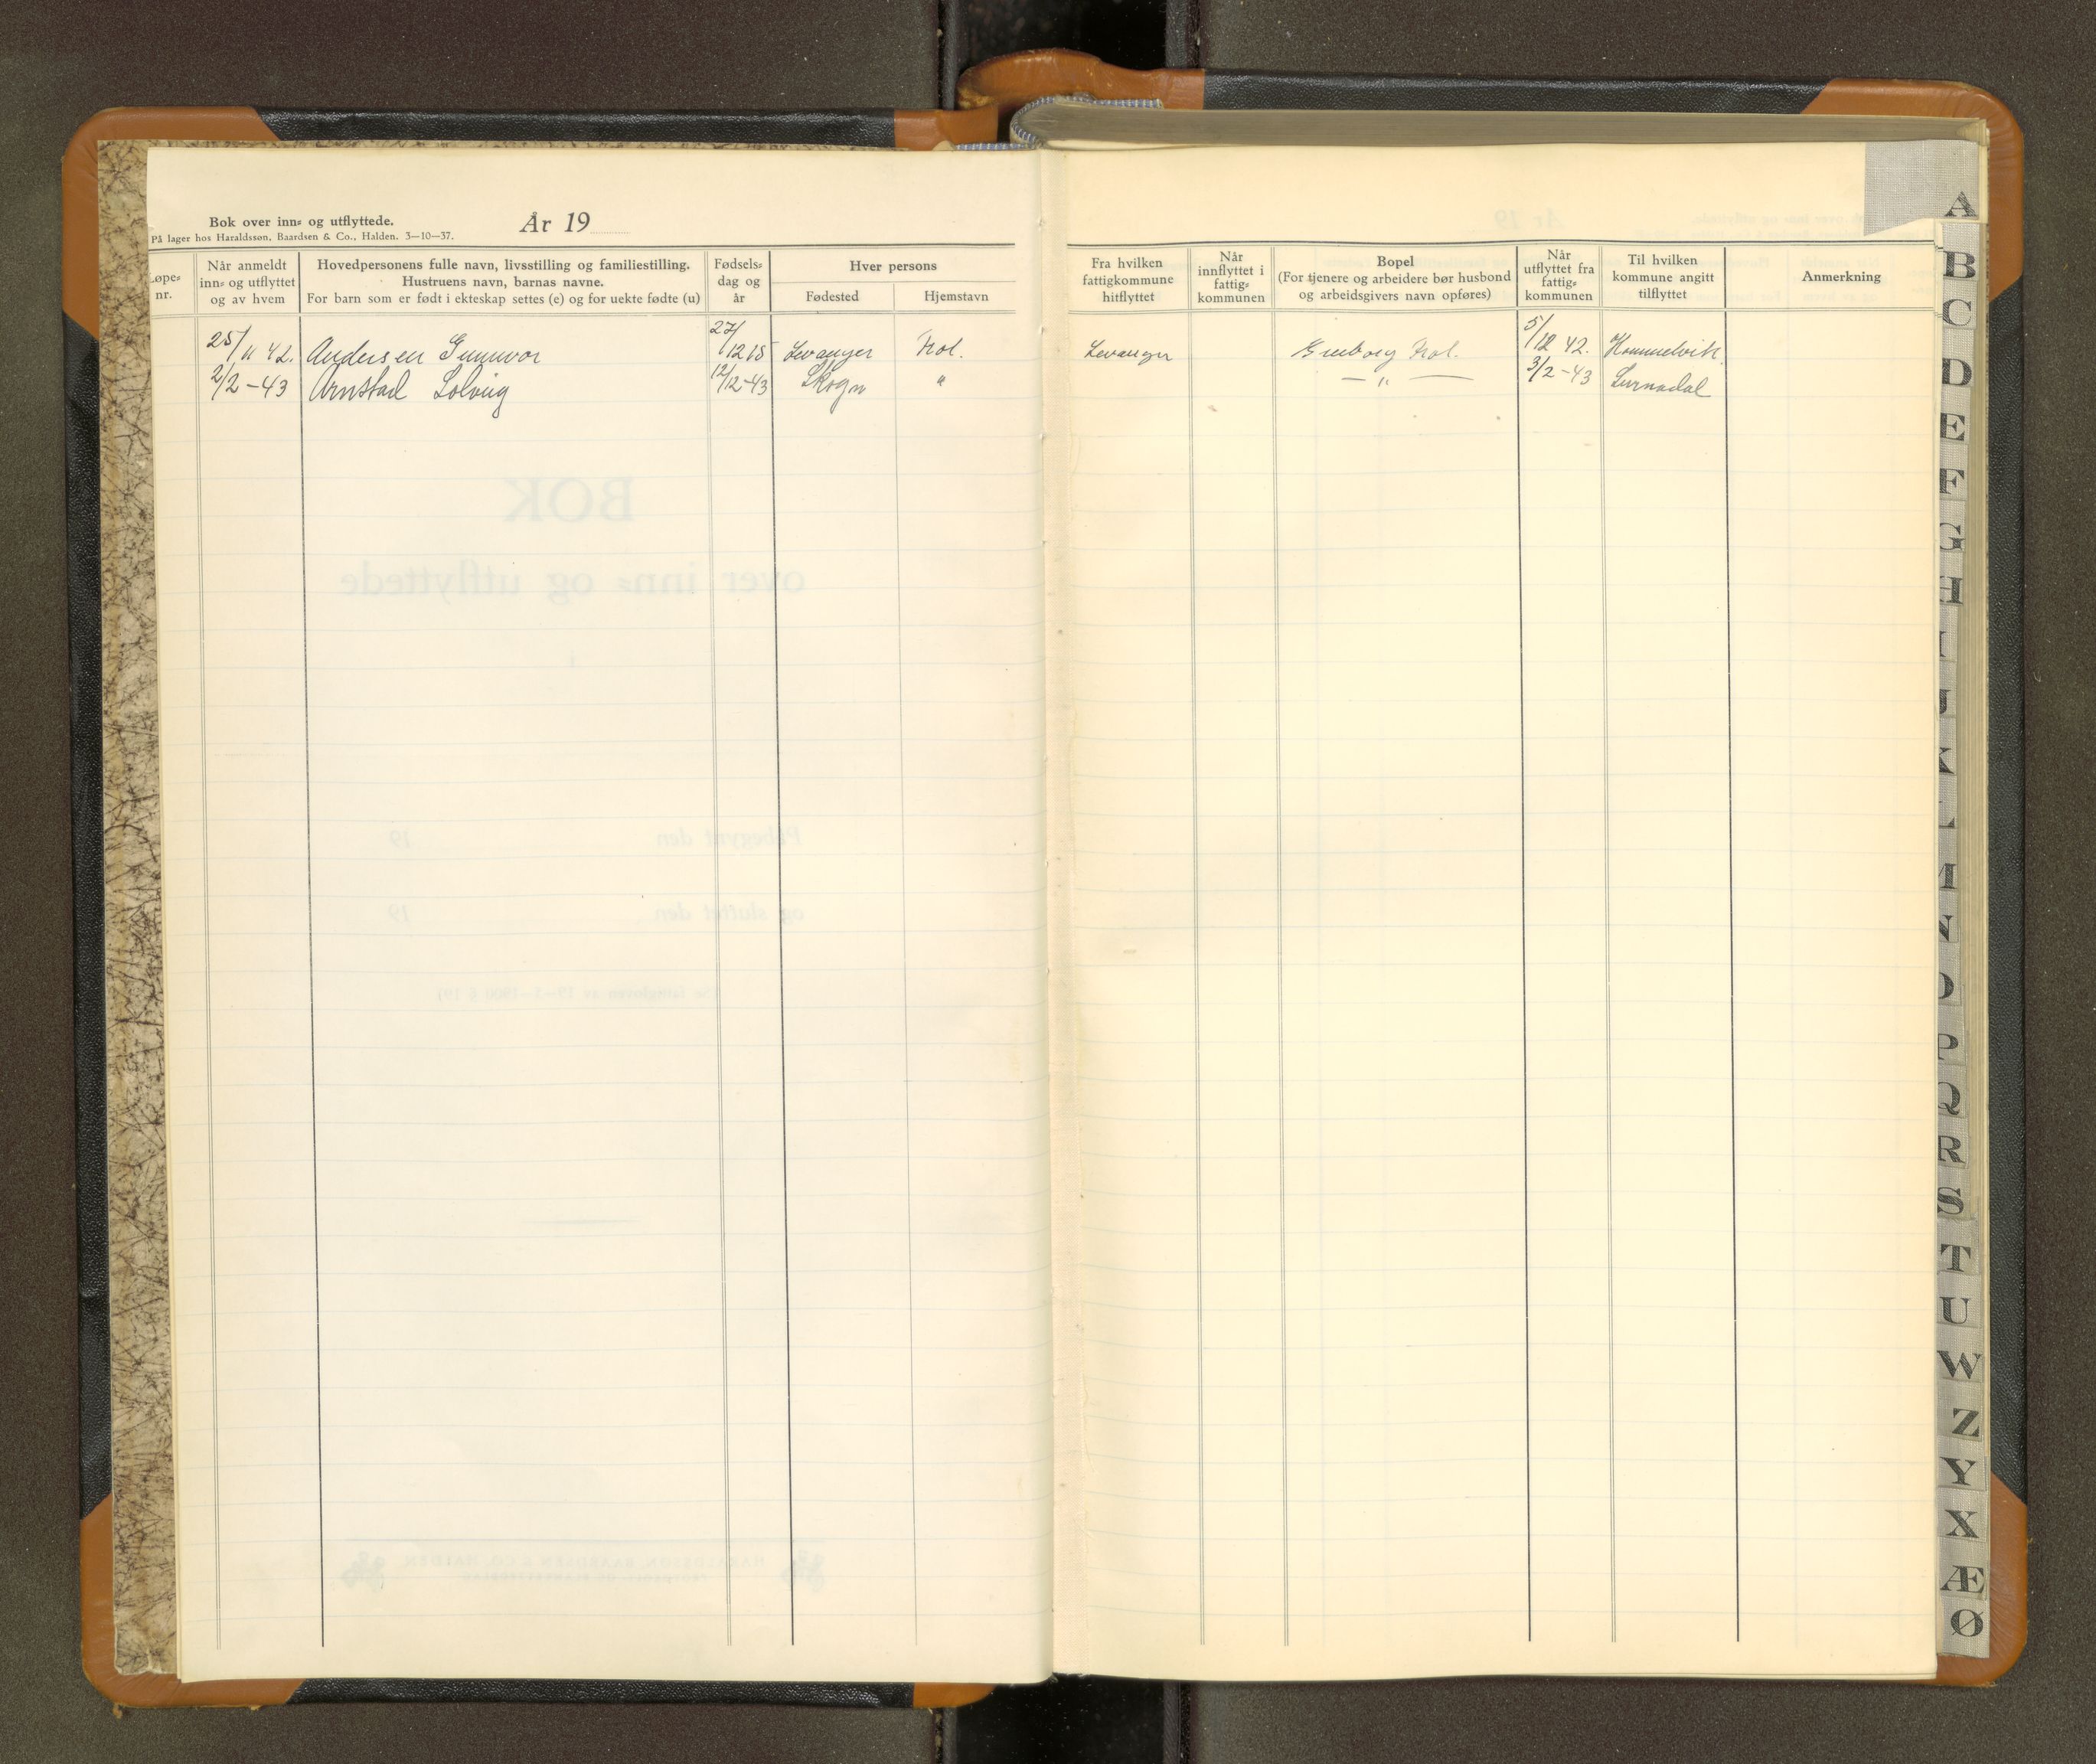 Bok over inn- og utflyttede.
År 19
På lager hos Haraldssøn, Baardsen & Co., Halden. 3—10—37.
Løpe-
nr.
Når anmeldt
inn- og utflyttet
og av hvem
Hovedpersonens fulle navn, livsstilling og familiestilling.
Hustruens navn, barnas navne.
For barn som er født i ekteskap settes (e) og for uekte fødte (u)
Fødsels-
dag og
år
Hver persons
Fødested
Hjemstavn
25/11 42. Andersen Gunnvor 27/12 18 Levanger Frol.
2/2-43 Arnstad Solveig 12/12-43 Skogn "
Fra hvilken
fattigkommune
hitflyttet
Når
innflyttet i
fattig-
kommunen
Bopel
(For tjenere og arbeidere bør husbond
og arbeidsgivers navn opføres)
Når
utflyttet fra
fattig-
kommunen
Til hvilken
kommune angitt
tilflyttet
Anmerkning
Levanger Frol. 5/12 42. Hommelvik.
— " — 3/2-43 Surnadal
A
B
C
D
E
F
G
H
I
J
K
L
M
N
O
P
Q
R
S
T
U
W
Z
Y
X
Æ
Ø